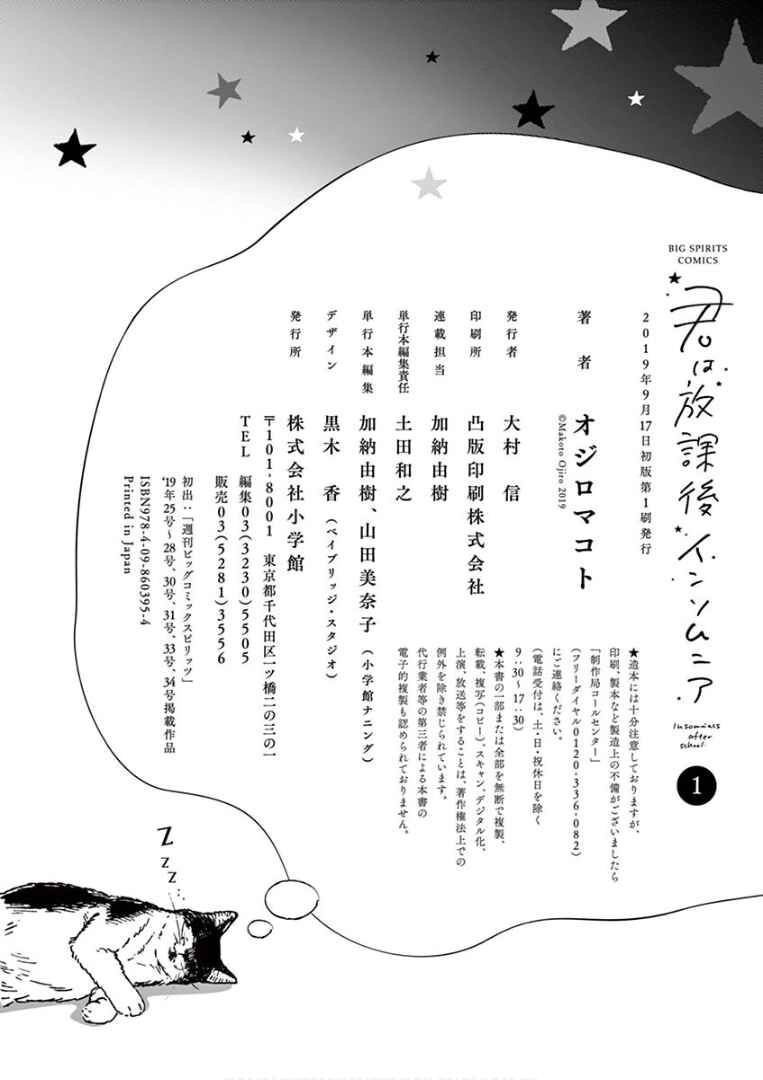 BIG SPIRITS
COMICS
君は放課後インソムニア
Insomniacs
after
school
1
2019年9月17日初版第1刷発行
著者 オジロマコト
©Makoto Ojiro 2019
発行者 大村 信
印刷所 凸版印刷株式会社
連載担当 加納由樹
単行本編集責任 土田和之
単行本編集 加納由樹、山田美奈子（小学館ナニング）
デザイン 黒木 香（ベイブリッジ・スタジオ）
発行所 株式会社小学館
〒101-8001 東京都千代田区一ツ橋二の三の一
TEL 編集03(3230)5505
販売03(5281)3556
初出：「週刊ビッグコミックスピリッツ」
'19年25号〜28号、30号、31号、33号、34号掲載作品
ISBN978-4-09-860395-4
Printed in Japan
★造本には十分注意しておりますが、
印刷、製本など製造上の不備がございましたら
「制作局コールセンター」
(フリーダイヤル0120-336-082)
にご連絡ください。
(電話受付は、土・日・祝休日を除く
9:30〜17:30)
★本書の一部または全部を無断で複製、
転載、複写(コピー)、スキャン、デジタル化、
上演、放送等をすることは、著作権法上での
例外を除き禁じられています。
代行業者等の第三者による本書の
電子的複製も認められておりません。
Z
Z
Z...